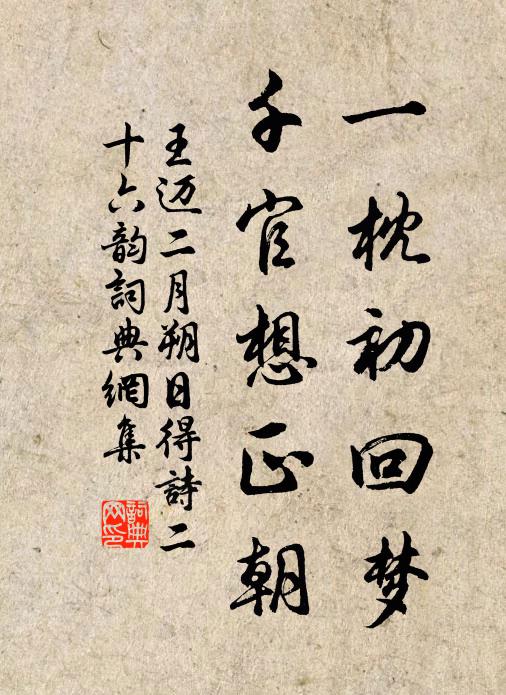 一枕初回梦
千官想正朝
王迈二月朔日得詩二
十六韵詞典網集
詞典
网印